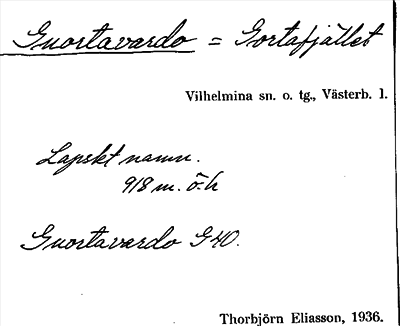 Guortavardo = Gortafjället
Vilhelmina sn. o. tg., Västerb. l.
Lapskt namn.
918 m. ö. h
Guortavardo G40.
Thorbjörn Eliasson, 1936.